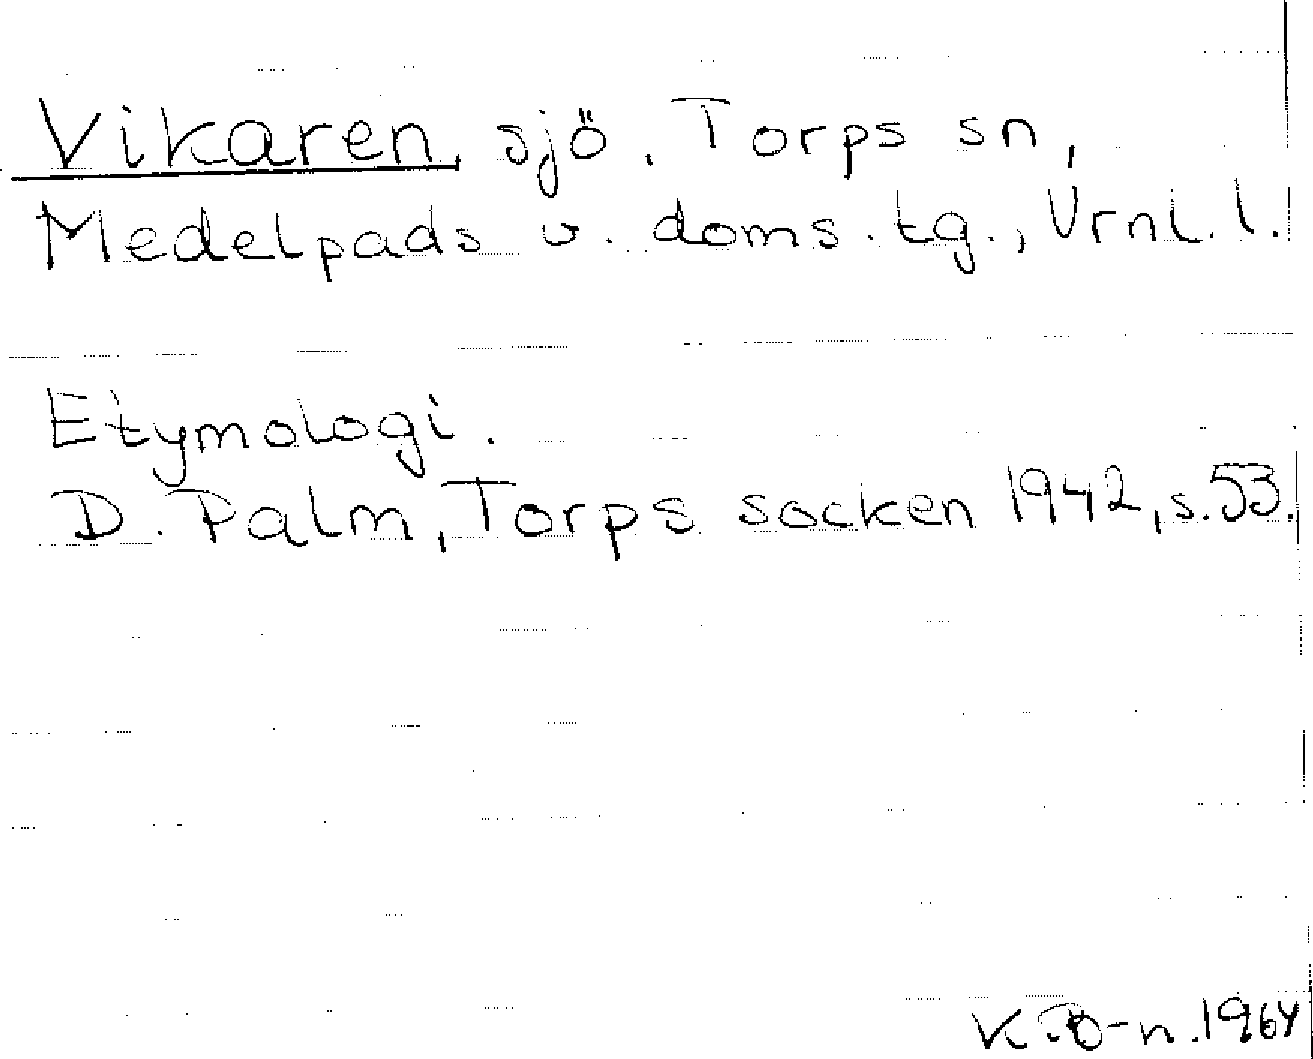 Vikaren, sjö, Torps sn,
Medelpads v. doms. tg., Vrnl. l.
Etymologi.
D. Palm, Torps socken 1942, s. 53.
K. B-n. 1964